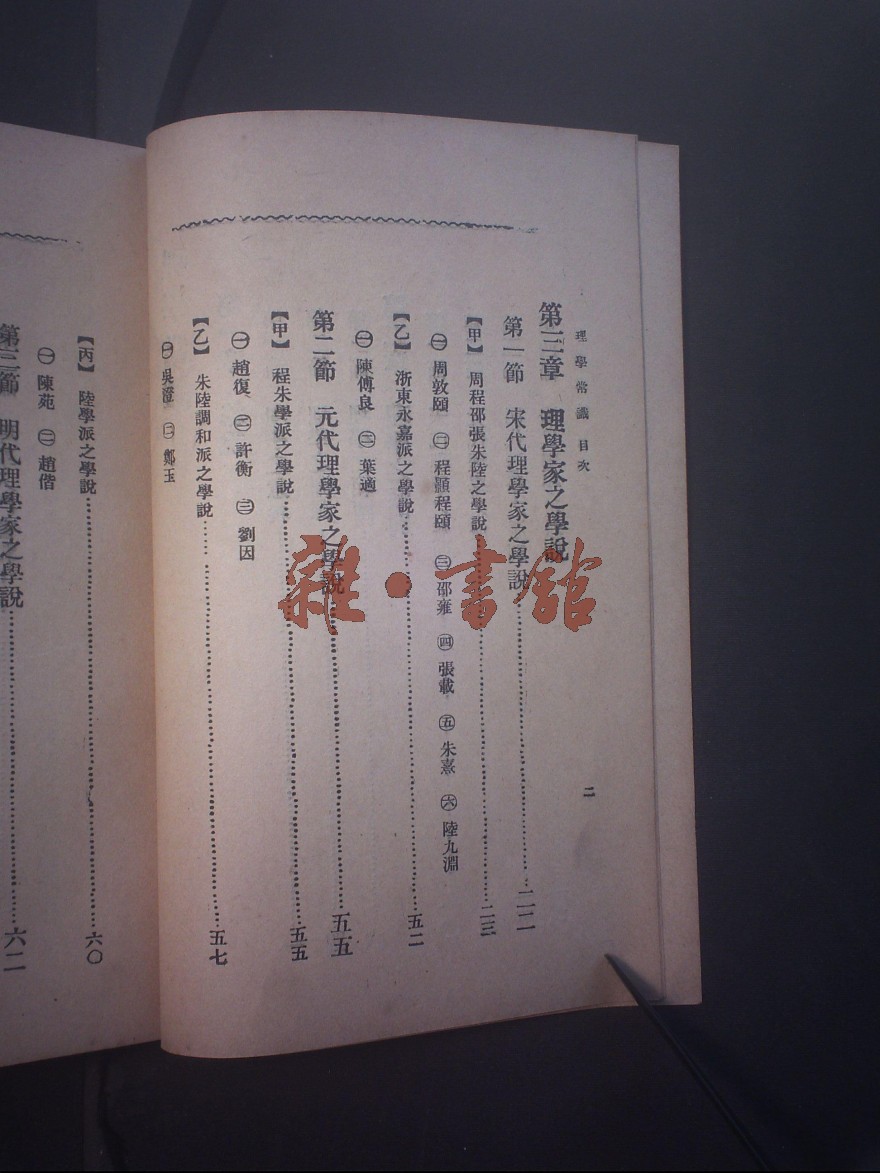 理學常識 目次
二
第三章 理學家之學說
第一節 宋代理學家之學說……二二
【甲】 周程邵張朱陸之學說……二三
㊀周敦頤 ㊁程顥程頤 ㊂邵雍 ㊃張載 ㊄朱熹 ㊅陸九淵
【乙】 浙東永嘉派之學說……五二
㊀陳傅良 ㊁葉適
第二節 元代理學家之學說……五五
【甲】 程朱學派之學說……五五
㊀趙復 ㊁許衡 ㊂劉因
【乙】 朱陸調和派之學說……五七
㊀吳澄 ㊁鄭玉
【丙】 陸學派之學說……六〇
㊀陳苑 ㊁趙偕
第三節 明代理學家之學說……六二
雜·書館